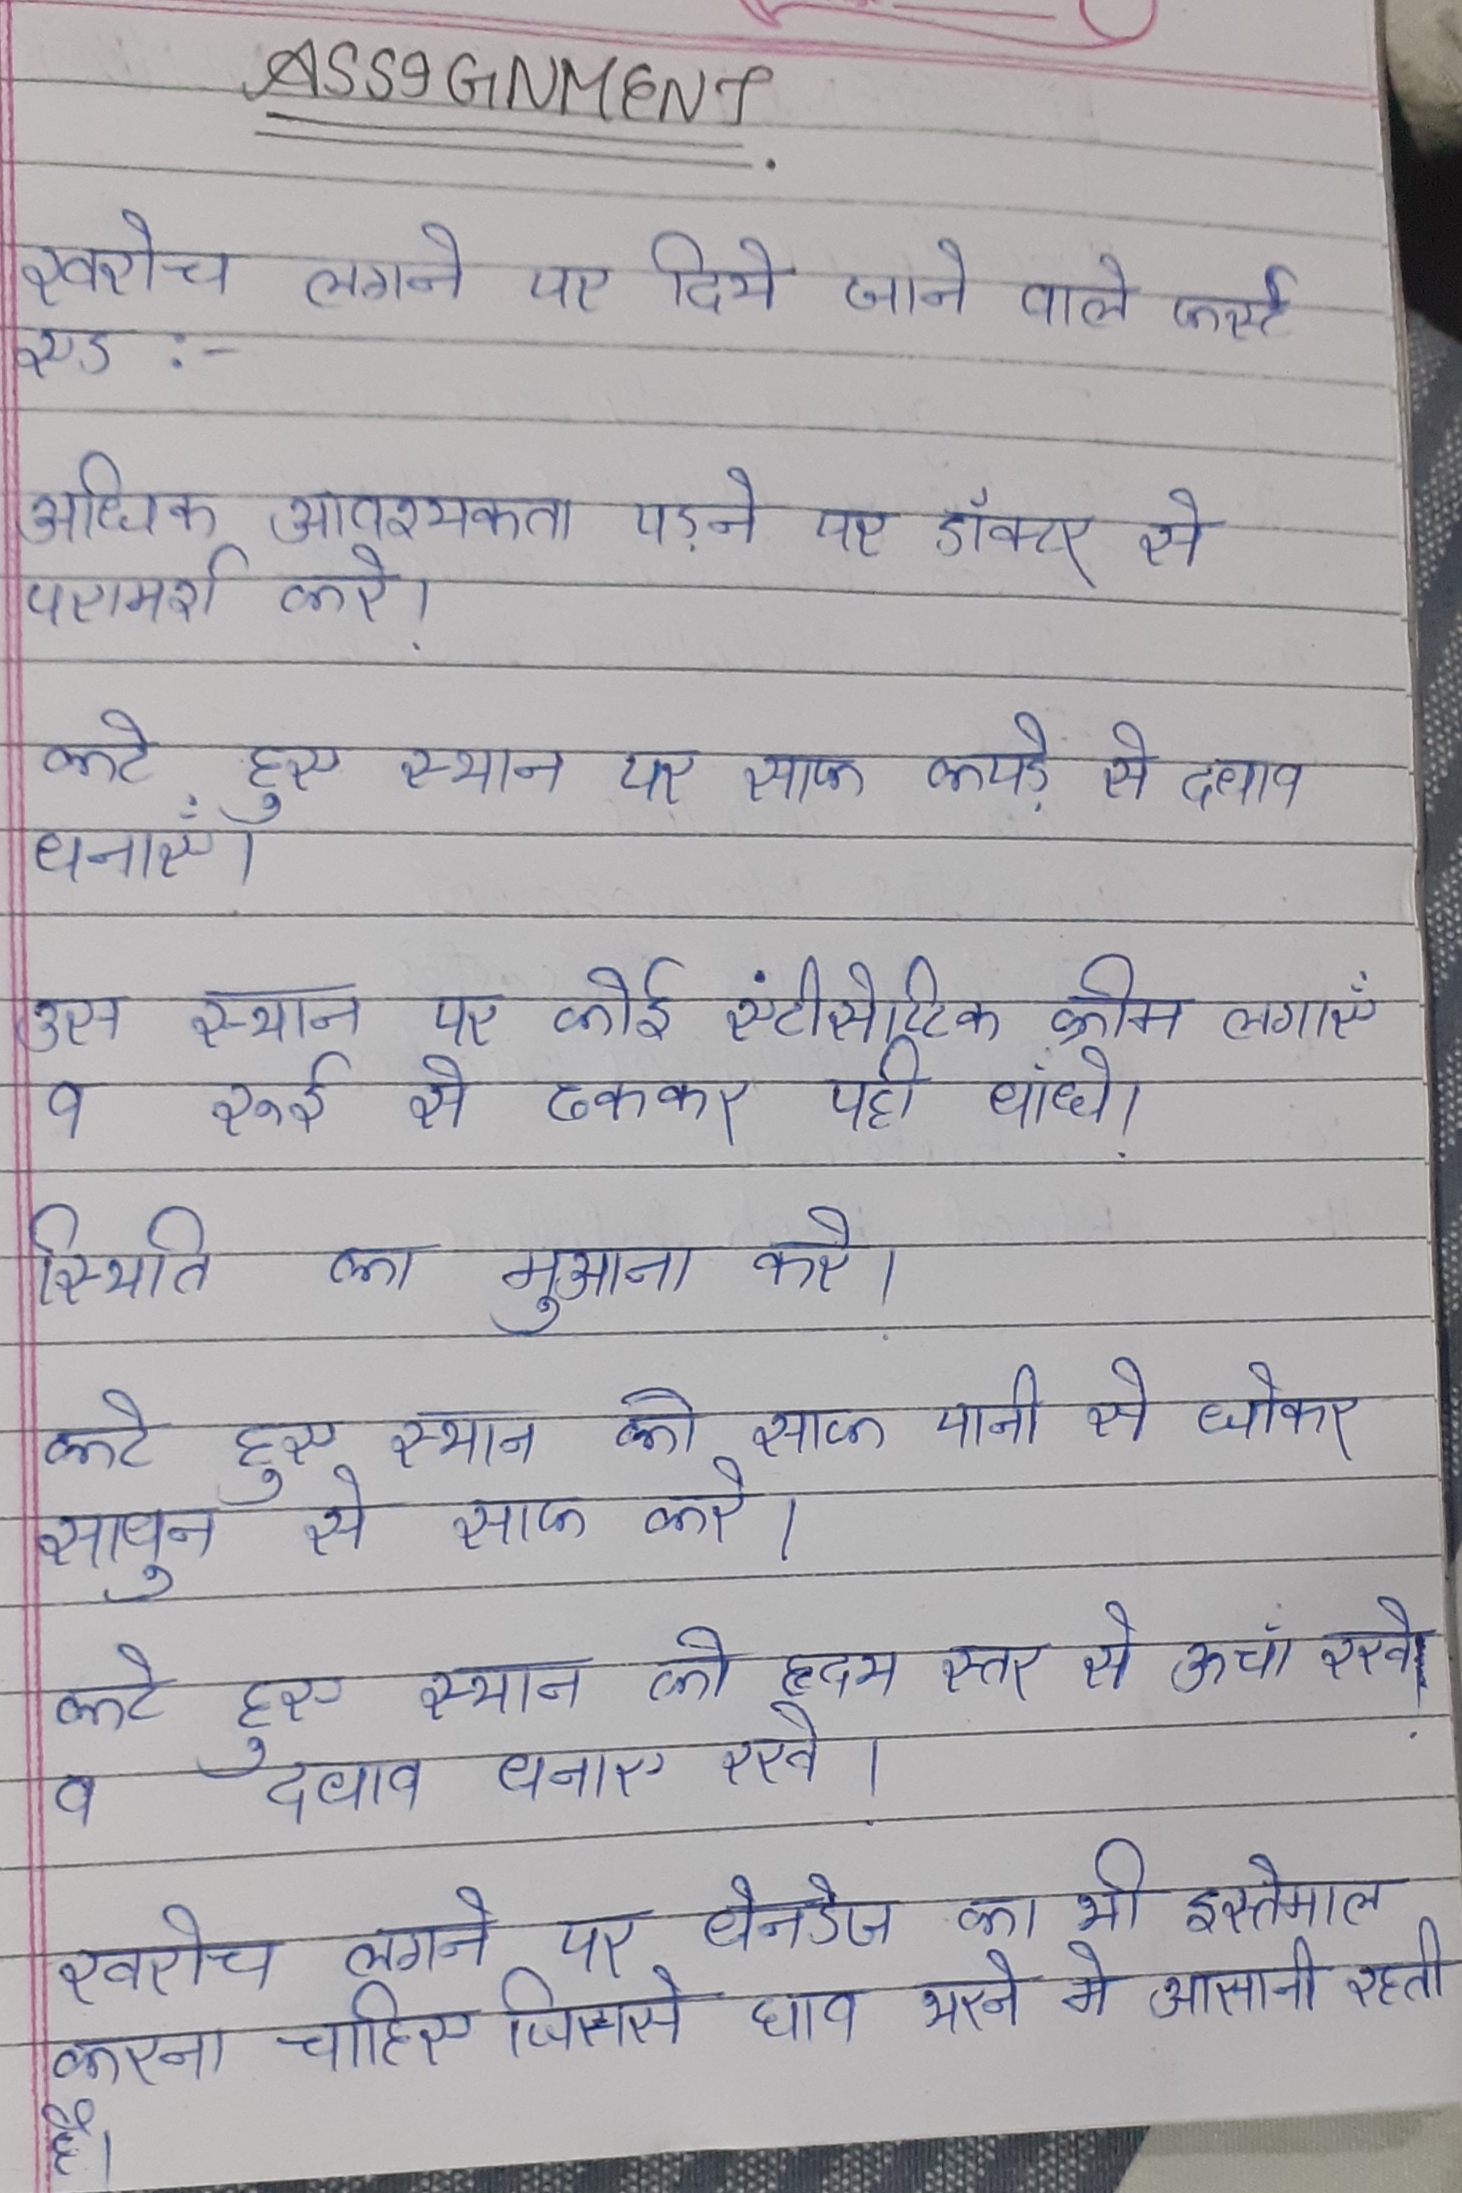 ASSIGNMENT.
खरोच लगने पर दिये जाने वाले फर्स्ट
एड :-
अधिक आवश्यकता पड़ने पर डॉक्टर से
परामर्श करे।
कटे हुए स्थान पर साफ कपड़े से दबाव
बनाएँ।
उस स्थान पर कोई एंटीसेप्टिक क्रीम लगाएँ
व रूई से ढककर पट्टी बांधे।
स्थिति का मुआना करे।
कटे हुए स्थान को साफ पानी से धोकर
साबुन से साफ करे।
कटे हुए स्थान को हृदय स्तर से ऊचाँ रखे।
व दबाव बनाए रखे।
खरोच लगने पर बेनडेज का भी इस्तेमाल
करना चाहिए जिससे घाव भरने मे आसानी रहती
है।